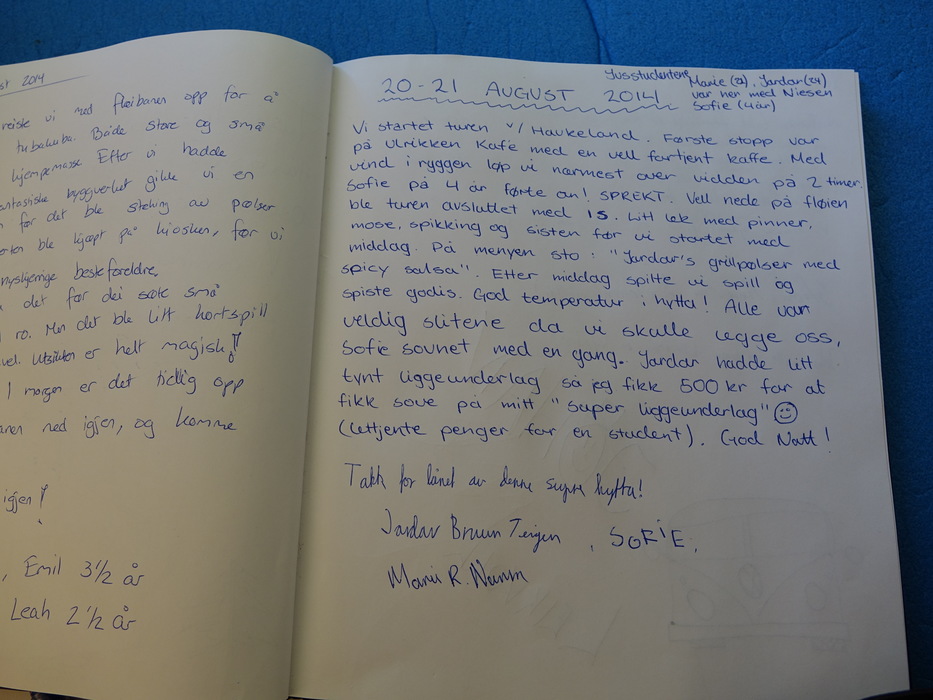 st 2014
reiste vi med fløibanen opp for å
tubakuba. Både store og små
kjempemasse Etter vi hadde
antastiske byggverket gikk vi en
n før det ble steking av pølser
erten ble kjøpt på kiosken, før vi
nyskjerrige besteforeldre.
det før dei søte små
ro. Men det ble litt kortspill
vel. Utsikten er helt magisk!
I morgen er det tidlig opp
anen ned igjen, og komme
igjen!
, Emil 3 1/2 år
Leah 2 1/2 år
20-21 AUGUST 2014
Jusstudentene Marie (23), Jardar (24)
var her med Niesen
Sofie (4 år)
Vi startet turen v/ Haukeland. Første stopp var
på Ulrikken Kafé med en vell fortjent kaffe. Med
vind i ryggen løp vi nærmest over vidden på 2 timer.
Sofie på 4 år førte an! SPREKT. Vell nede på fløien
ble turen avsluttet med is. Litt lek med pinner,
mose, spikking og sisten før vi startet med
middag. På menyen sto: "Jardar's grillpølser med
spicy salsa". Etter middag spilte vi spill og
spiste godis. God temperatur i hytta! Alle var
veldig slitene da vi skulle legge oss,
Sofie sovnet med en gang. Jardar hadde litt
tynt liggeunderlag så jeg fikk 500 kr for at
fikk sove på mitt "super liggeunderlag" ☺
(lettjente penger for en student). God Natt!
Takk for lånet av denne supre hytta!
Jardar Bruun Teigen , SOFIE,
Marie R.